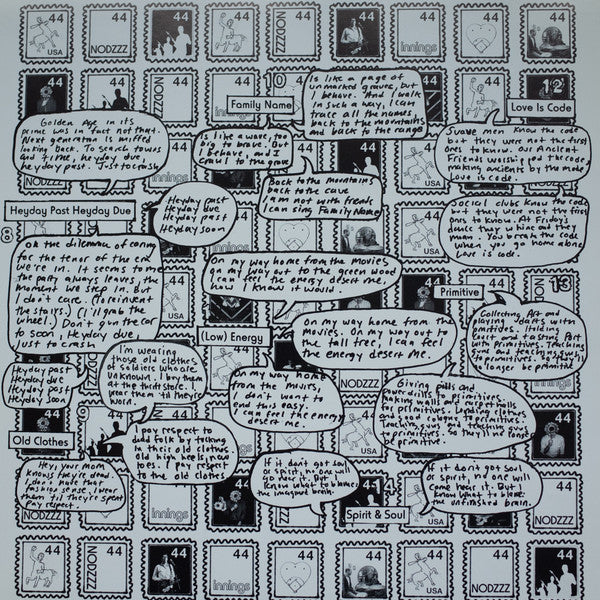 44 44 44 44 44 44 44 44 44
USA NODZZZ NODZZZ innings
10
Family Name
Is like a page of
unmarked graves, but
I behave. And I walk
in such a way, I can
trace all the names,
back to the mountains
and back to the range
12
Love Is Code
Golden Age in its
prime was in fact not that.
Next generation is miffed
looking back. To search towns
and time, heyday due,
heyday past. Just to crash
Is like a wave, too
big to brave. But
I behave, and I
crawl to the grave
Suave men know the code
but they were not the first
ones to know. Our Ancient
Friends worship god the code,
making ancients by the mode
Love is code.
Back to the mountains
back to the cave
I am not with friends
I can sing Family Name
8
Heyday Past Heyday Due
Heyday past
Heyday due
Heyday past
Heyday soon
Social clubs know the code
but they were not the first
ones to know. At Friday's
dance they whine and they
moan. You break the code
when you go home alone
Love is code.
Oh the dilemma of caring
for the tenor of the era
we're in. It seems to me
the party always leaves, the
moment we step in. But
I don't care. (To reinvent
the stairs.) (I'll grab the
wheel.) Don't give the car
to soon, Heyday due,
just to crash
On my way home from the movies
on my way out to the green wood
I can feel the energy desert me,
how I know it would.
Primitive
13
Collecting Art and
playing Jokers with
primitives. Holding
court and tasting Port
with Primitives. Teaching
gyno and teaching sums,
to primitives. So they'll
no longer be primitive
(Low) Energy
On my way home from the
movies. On my way out to
the tall tree, I can feel
the energy desert me.
Heyday past
Heyday due
Heyday past
Heyday soon
I'm wearing
those old clothes,
of soldiers who are
unknown. I buy them
at the thrift store
wear them til they're
worn.
On my way home
from the movies,
don't want to
end this easy.
I can feel the energy
desert me.
NODZZZ
Giving pills and
power drills to primitives.
Raking walls in carpet halls
are primitives. Lending clothes
and good cologne to primitives.
Teaching guns and teaching sums
to primitives. So they'll no longer
be primitive.
9
Old Clothes
I pay respect to
dead folk by tucking
in their old clothes
old high heels, now
toes. I pay respect
to the old clothes
Hey, your mom
knows they're dead.
I don't make that
fashion sense. I wear
them til they're spent
My respect.
If it don't got soul
or spirit, no one will
go near it. But I
know what to blame:
the imagined brain.
Spirit & Soul
If it don't got soul
or spirit, no one will
come near it. But I
know what to blame:
unfinished brain.
NODZZZ innings USA NODZZZ
44 44 44 44 44 44 44 44 44
USA NODZZZ innings USA NODZZZ